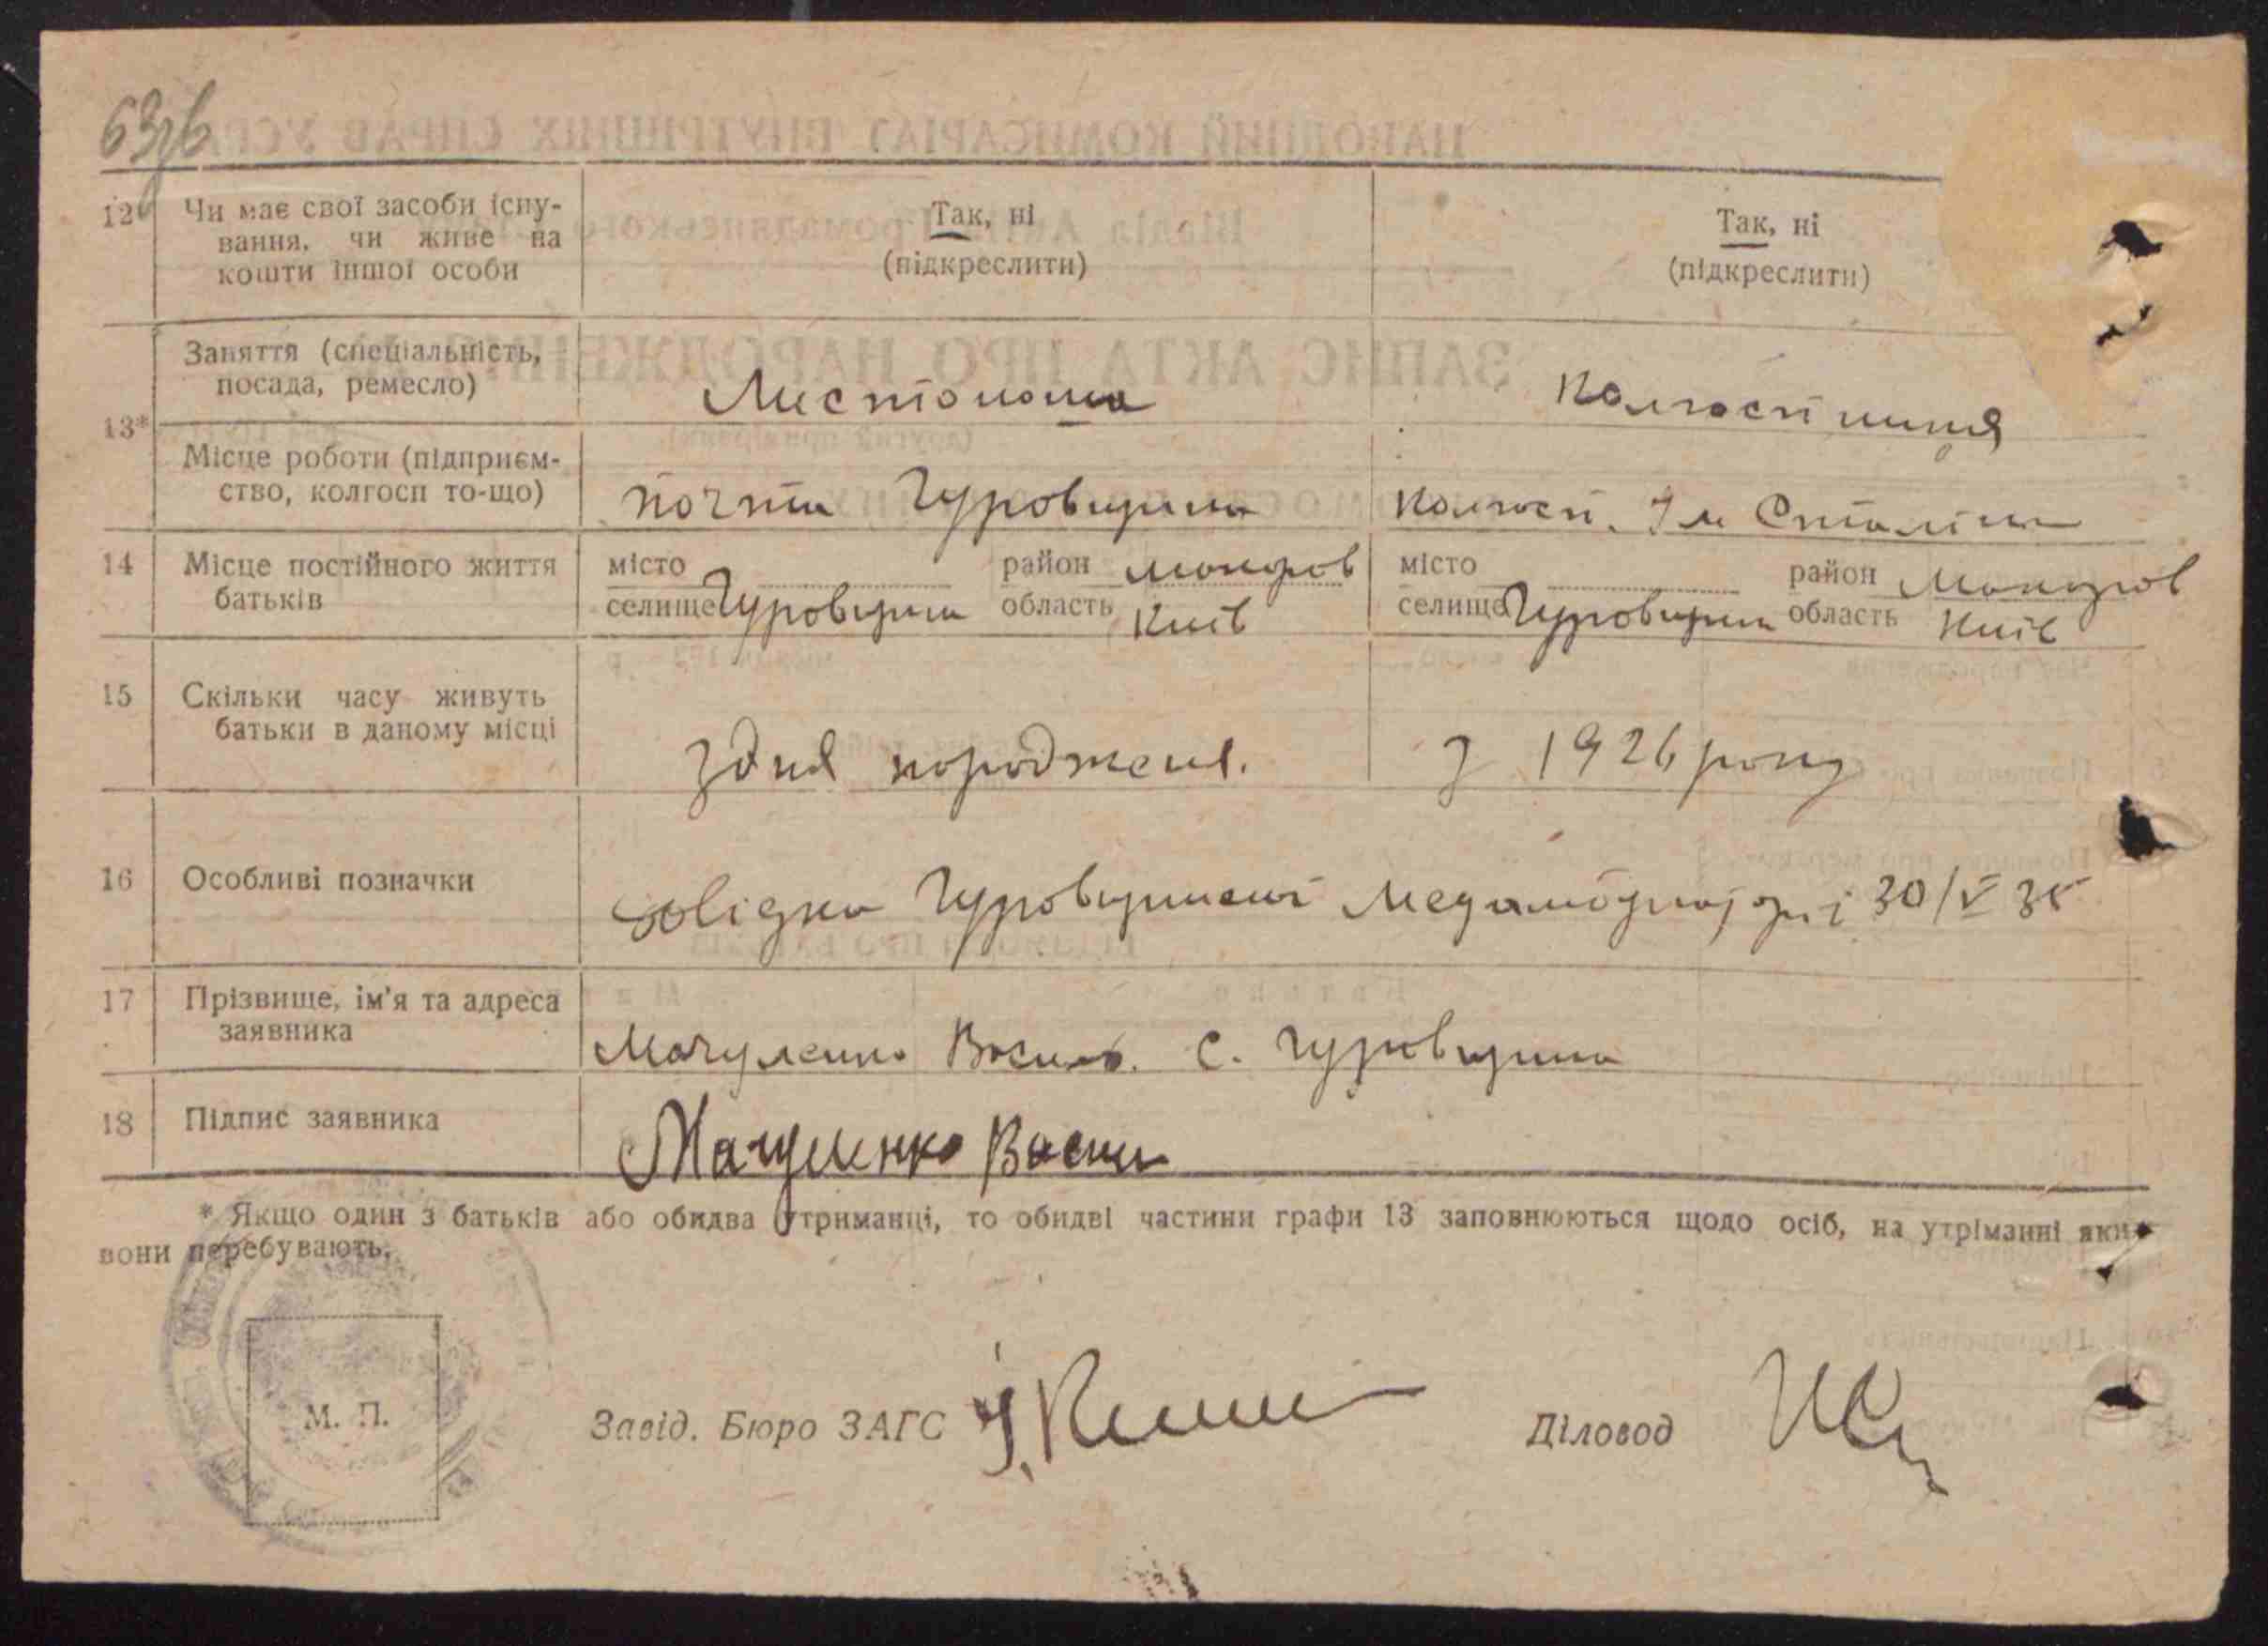 63зв
12 Чи має свої засоби існу-
вання, чи живе на
кошти іншої особи
Так, ні
(підкреслити)
Так, ні
(підкреслити)
13*
Заняття (спеціальність,
посада, ремесло)
Листоноша
Колгоспниця
Місце роботи (підприєм-
ство, колгосп то-що)
почта Гуровщина
Колгосп. Ім Сталіна
14 Місце постійного життя
батьків
місто
селище Гуровщина
район Макаров
область Київ
місто
селище Гуровщина
район Макаров
область Київ
15 Скільки часу живуть
батьки в даному місці
з дня народженя.
З 1926 року
16 Особливі позначки
Гуровщинскої 30/V 35
17 Прізвище, ім'я та адреса
заявника
Мачуленко Василь. С. Гуровщина
18 Підпис заявника
Мачуленко Васил
* Якщо один з батьків або обидва утриманці, то обидві частини графи 13 заповнюються щодо осіб, на утріманні яких
вони перебувають.
М. П.
Завід. Бюро ЗАГС
Діловод